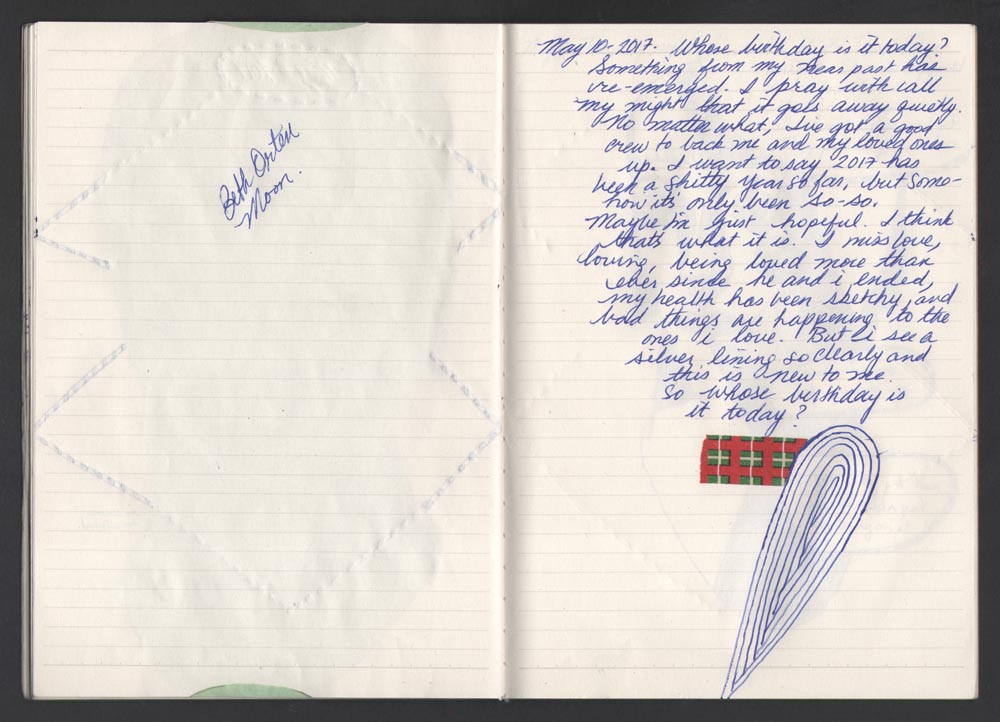 Beth Orten
Moon.
May 10-2017. Whose birthday is it today?
Something from my near past has
re-emerged. I pray with all
my might that it goes away quietly.
No matter what, I've got a good
crew to back me and my loved ones
up. I want to say 2017 has
been a shitty year so far, but some-
how it's only been so-so.
Maybe I'm just hopeful. I think
that's what it is. I miss love,
loving, being loved more than
ever since he and i ended,
my health has been sketchy, and
bad things are happening to the
ones i love. But i see a
silver lining so clearly and
this is new to me.
So whose birthday is
it today?